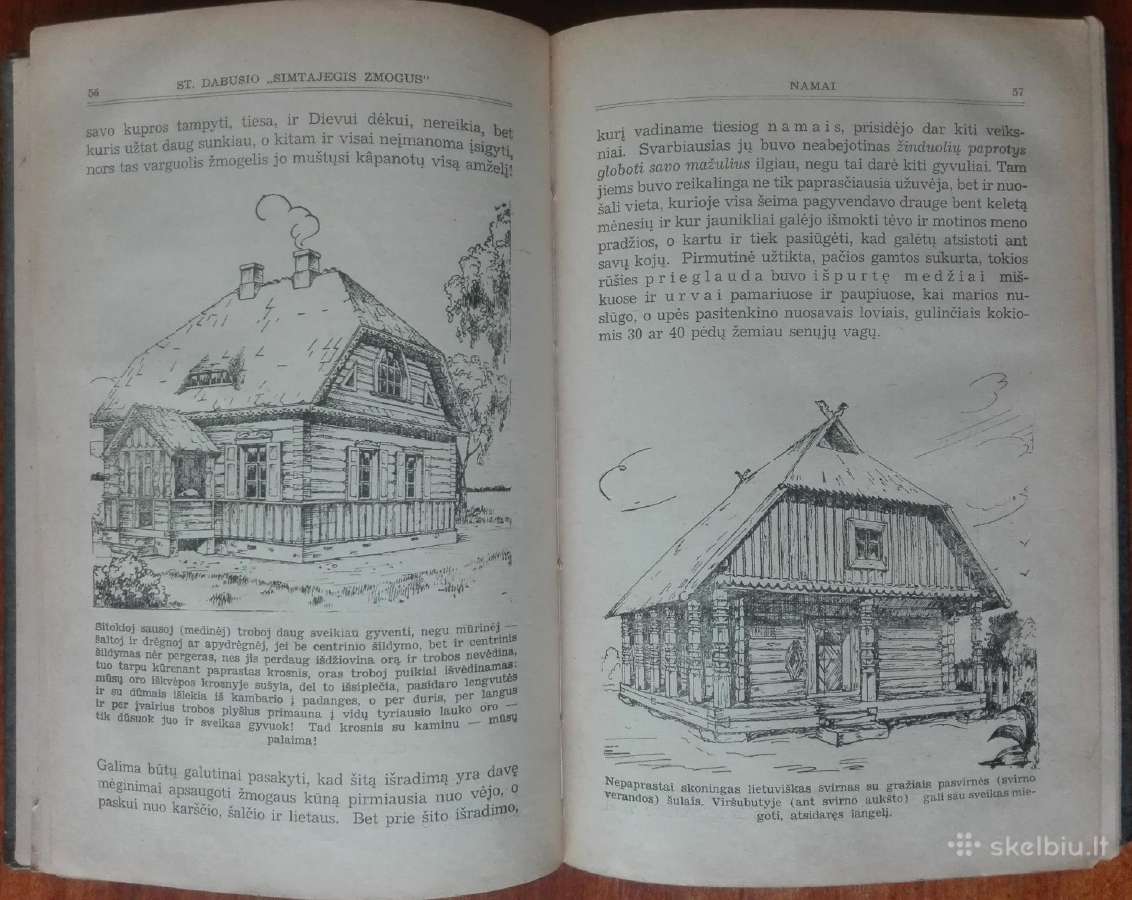 56
ST. DABUŠIO „ŠIMTAJEGIS ŽMOGUS"
savo kupros tampyti, tiesa, ir Dievui dėkui, nereikia, bet
kuris užtat daug sunkiau, o kitam ir visai neįmanoma įsigyti,
nors tas varguolis žmogelis jo muštųsi kâpanotų visą amželį!
Šitokioj sausoj (medinėj) troboj daug sveikiau gyventi, negu mūrinėj —
šaltoj ir drėgnoj ar apydrėgnėj, jei be centrinio šildymo, bet ir centrinis
šildymas nėr pergeras, nes jis perdaug išdžiovina orą ir trobos nevėdina,
tuo tarpu kūrenant paprastas krosnis, oras troboj puikiai išvėdinamas:
mūsų oro iškvėpos krosnyje sušyla, dėl to išsiplečia, pasidaro lengvutės
ir su dūmais išlekia iš kambario į padanges, o per duris, per langus
ir per įvairius trobos plyšius primauna į vidų tyriausio lauko oro —
tik dūsuok juo ir sveikas gyvuok! Tad krosnis su kaminu — mūsų
palaima!
Galima būtų galutinai pasakyti, kad šitą išradimą yra davę
mėginimai apsaugoti žmogaus kūną pirmiausia nuo vėjo, o
paskui nuo karščio, šalčio ir lietaus. Bet prie šito išradimo,
NAMAI
57
kurį vadiname tiesiog namais, prisidėjo dar kiti veiks-
niai. Svarbiausias jų buvo neabejotinas žinduolių paprotys
globoti savo mažulius ilgiau, negu tai darė kiti gyvuliai. Tam
jiems buvo reikalinga ne tik paprasčiausia užuvėja, bet ir nuo-
šali vieta, kurioje visa šeima pagyvendavo drauge bent keletą
mėnesių ir kur jaunikliai galėjo išmokti tėvo ir motinos meno
pradžios, o kartu ir tiek pasiūgėti, kad galėtų atsistoti ant
savų kojų. Pirmutinė užtikta, pačios gamtos sukurta, tokios
rūšies prieglauda buvo išpurtę medžiai miš-
kuose ir urvai pamariuose ir paupiuose, kai marios nu-
slūgo, o upės pasitenkino nuosavais loviais, gulinčiais kokio-
mis 30 ar 40 pėdų žemiau senųjų vagų.
Nepaprastai skoningas lietuviškas svirnas su gražiais pasvirnės (svirno
verandos) šulais. Viršubutyje (ant svirno aukšto) gali sau sveikas mie-
goti, atsidaręs langelį.
skelbiu.lt